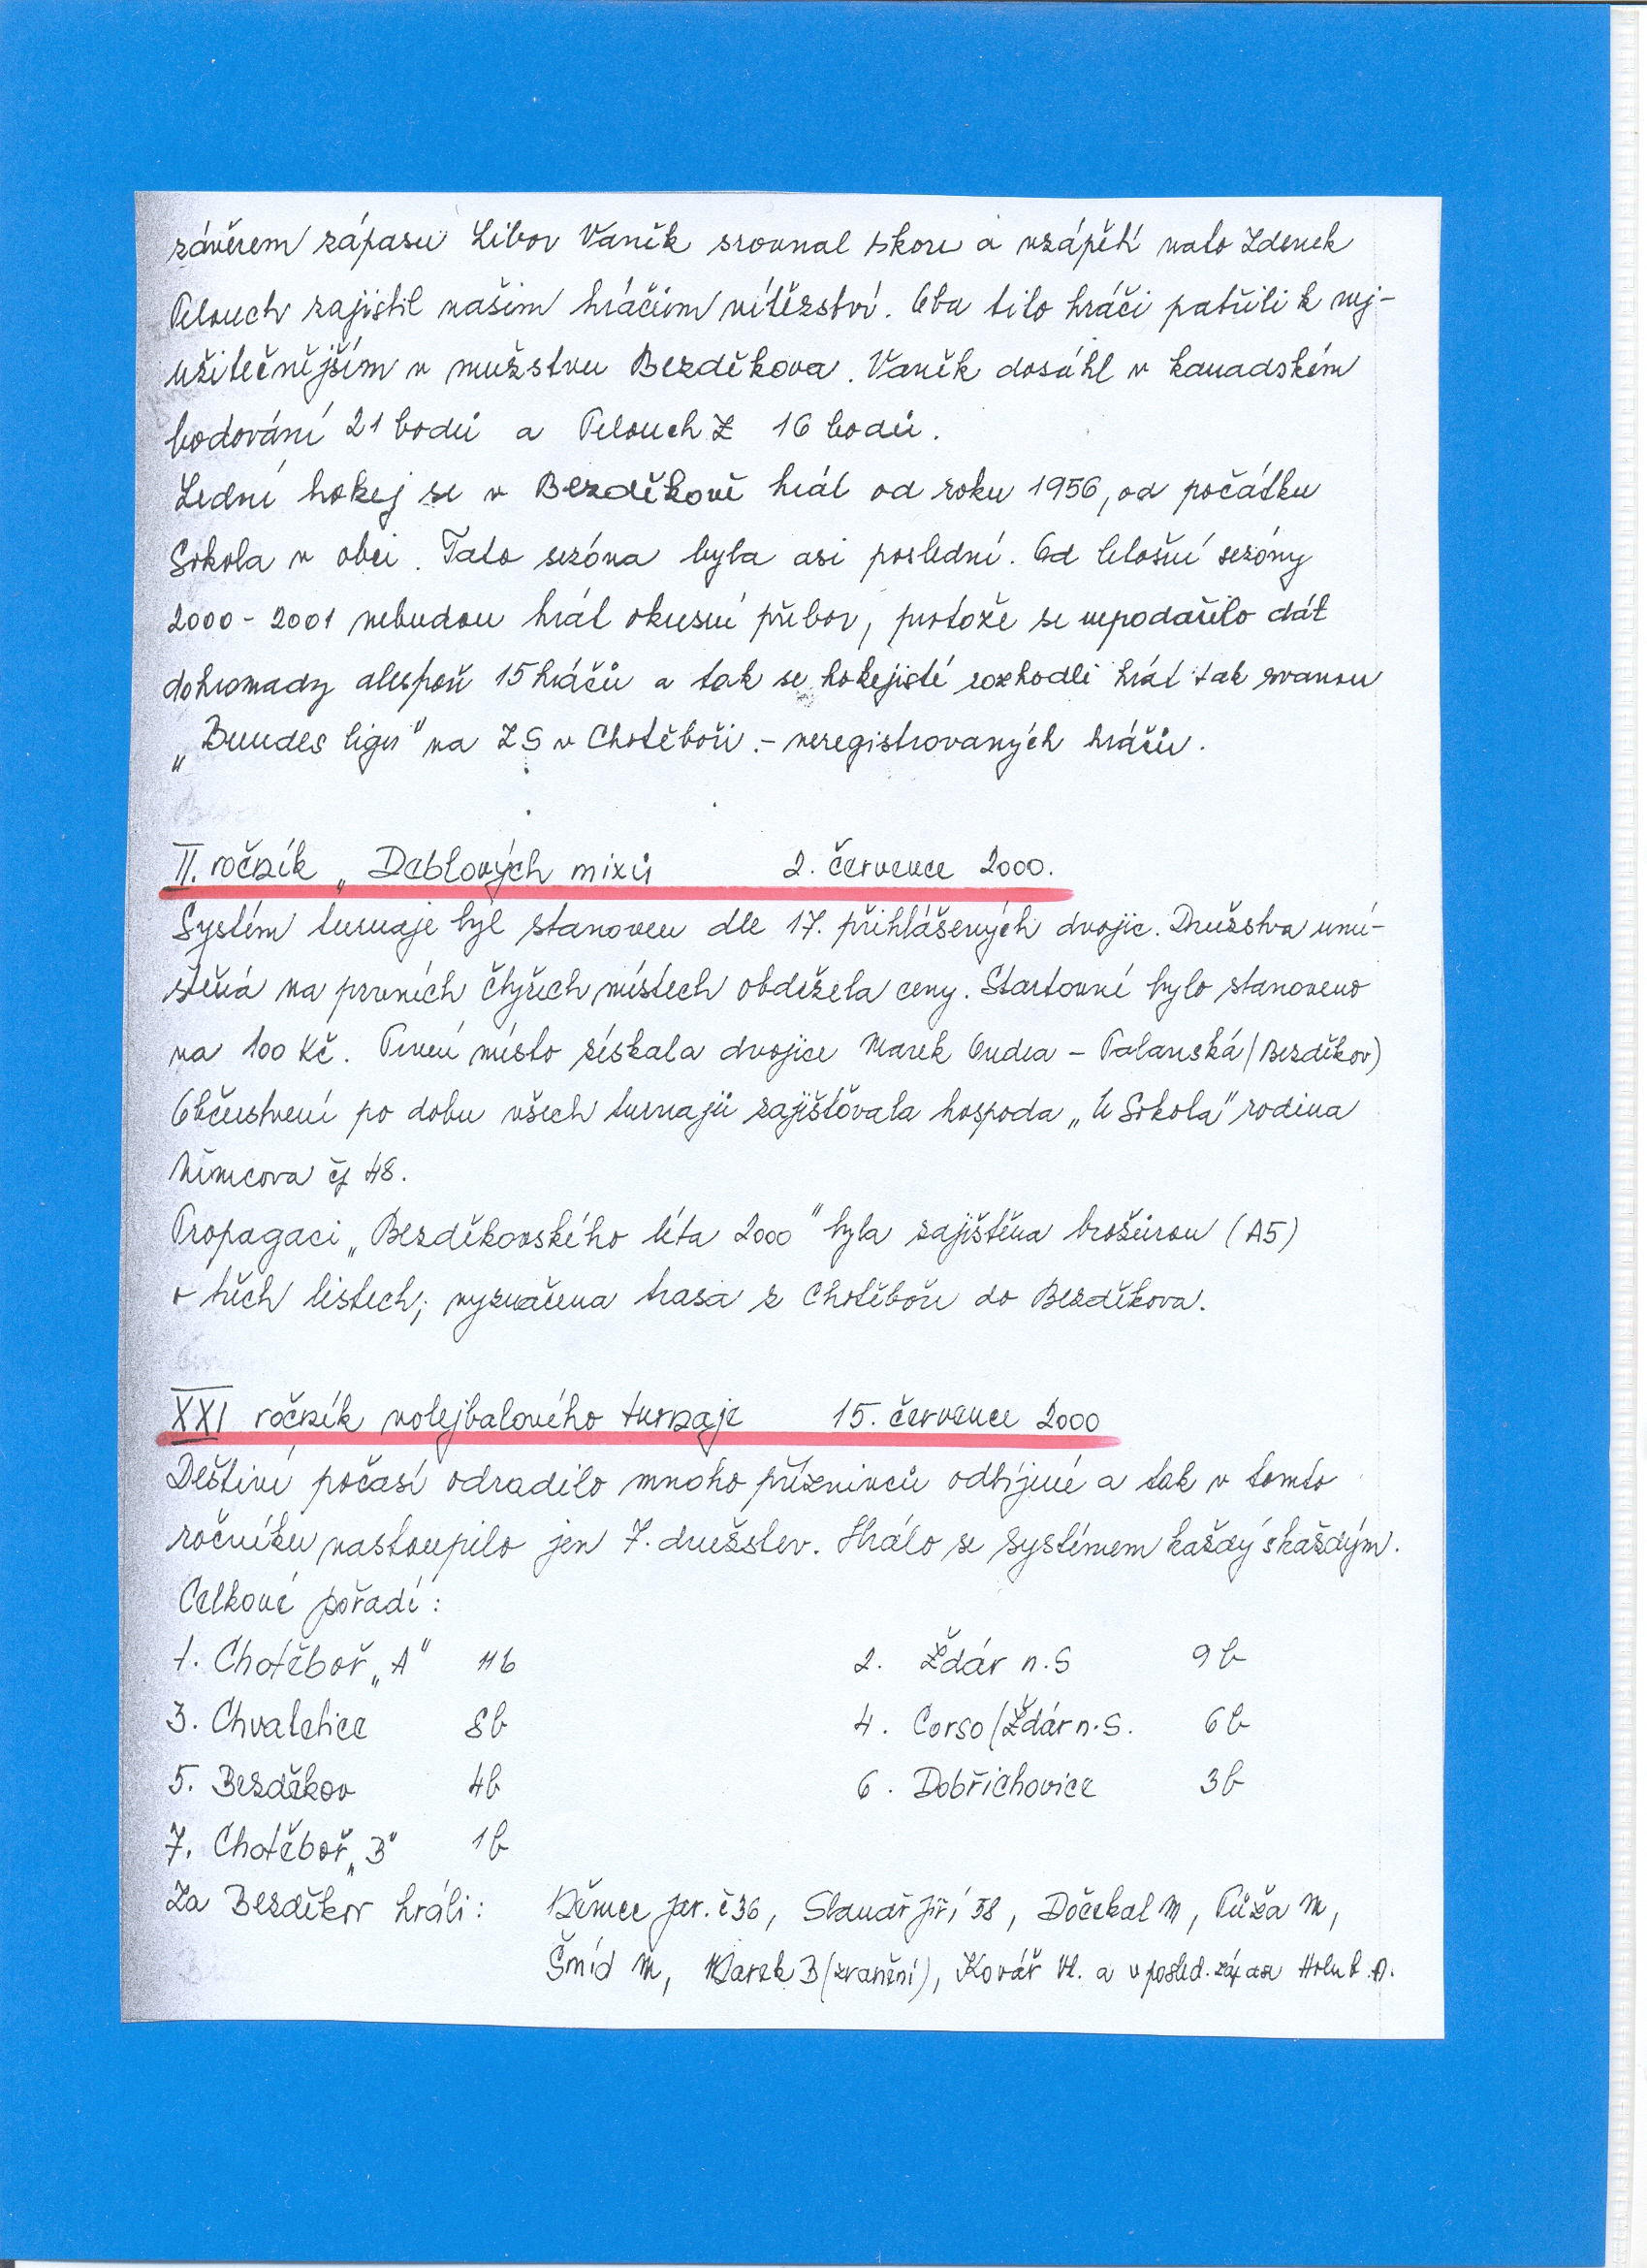 závěrem zápasu Libor Vaněk srovnal skore a vzápětí nato Zdenek
Pelouch zajistil našim hráčům vítězství. Oba tito hráči patřili k nej-
užitečnějším v mužstvu Bezděkova. Vaněk dosáhl v kanadském
bodování 21 bodů a Pelouch Z 16 bodů.
Lední hokej se v Bezděkově hrál od roku 1956, od počátku
Sokola v obci. Tato sezóna byla asi poslední. Od letošní sezóny
2000 - 2001 nebudou hrát okresní přebor, protože se nepodařilo dát
dohromady alespoň 15 hráčů a tak se hokejisté rozhodli hrát tak zvanou
„Bundes ligu" na ZS v Chotěboři. - neregistrovaných hráčů.
II. ročník „Deblových mixů 2. července 2000.
Systém turnaje byl stanoven dle 17. přihlášených dvojic. Družstva umí-
stěná na prvních čtyřech místech obdržela ceny. Startovné bylo stanoveno
na 100 Kč. První místo získala dvojice Marek Ondra - Palanská (Bezděkov)
Občerstvení po dobu všech turnajů zajišťovala hospoda „U Sokola" rodina
Němcova čp 48.
Propagaci „Bezděkovského léta 2000" byla zajištěna brožurou (A5)
v třech listech; vyznačena trasa z Chotěboře do Bezděkova.
XXI ročník volejbalového turnaje 15. července 2000
Deštivé počasí odradilo mnoho příznivců odbíjené a tak v tomto
ročníku nastoupilo jen 7. družstev. Hrálo se systémem každý s každým.
Celkové pořadí:
1. Chotěboř „A" 11b 2. Ždár n.S 9b
3. Chvaletice 8b 4. Corso (Ždár n.S. 6b
5. Bezděkov 4b 6. Dobřichovice 3b
7. Chotěboř „B" 1b
Za Bezděkov hráli: Němec Jar. č 36, Slanař Jiří 58, Dočekal M, Půža M,
Šmíd M, Marek B (zranění), Kovář Vl. a v posled. zápase Holub A.